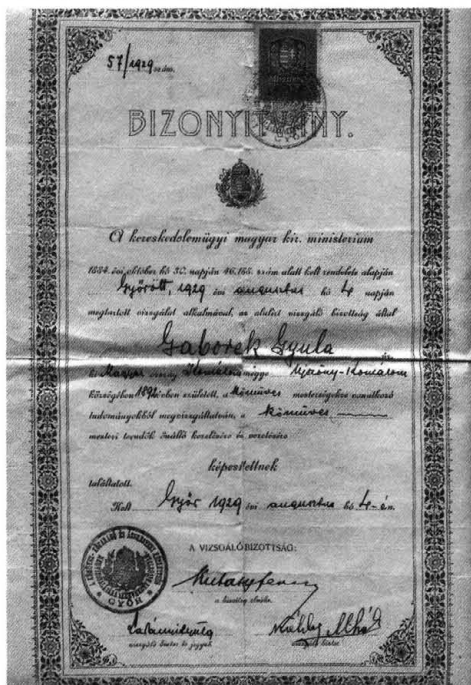 57/1929 szám.
BIZONYITVÁNY.
A kereskedelemügyi magyar kir. ministerium
1884. évi október hó 30. napján 46.188. szám alatt kelt rendelete alapján
Győrött, 1929 évi augusztus hó 4 napján
megtartott vizsgálat alkalmával, az alulírt vizsgáló bizottság által
Gaborek Gyula úr,
ki Magyar ország Komárom megye Ujszőny-Komárom
községében 1892-ben született, a kőműves mesterségekre vonatkozó
tudományokból megvizsgáltatván, a kőműves
mesteri teendők önálló kezelésére és vezetésére
képesitettnek
találtatott.
Kelt Győr 1929 évi augusztus hó 4-én.
A VIZSGÁLÓBIZOTTSÁG:
a bizottság elnöke.
GYŐR
vizsgáló biztos és jegyző
vizsgáló biztos